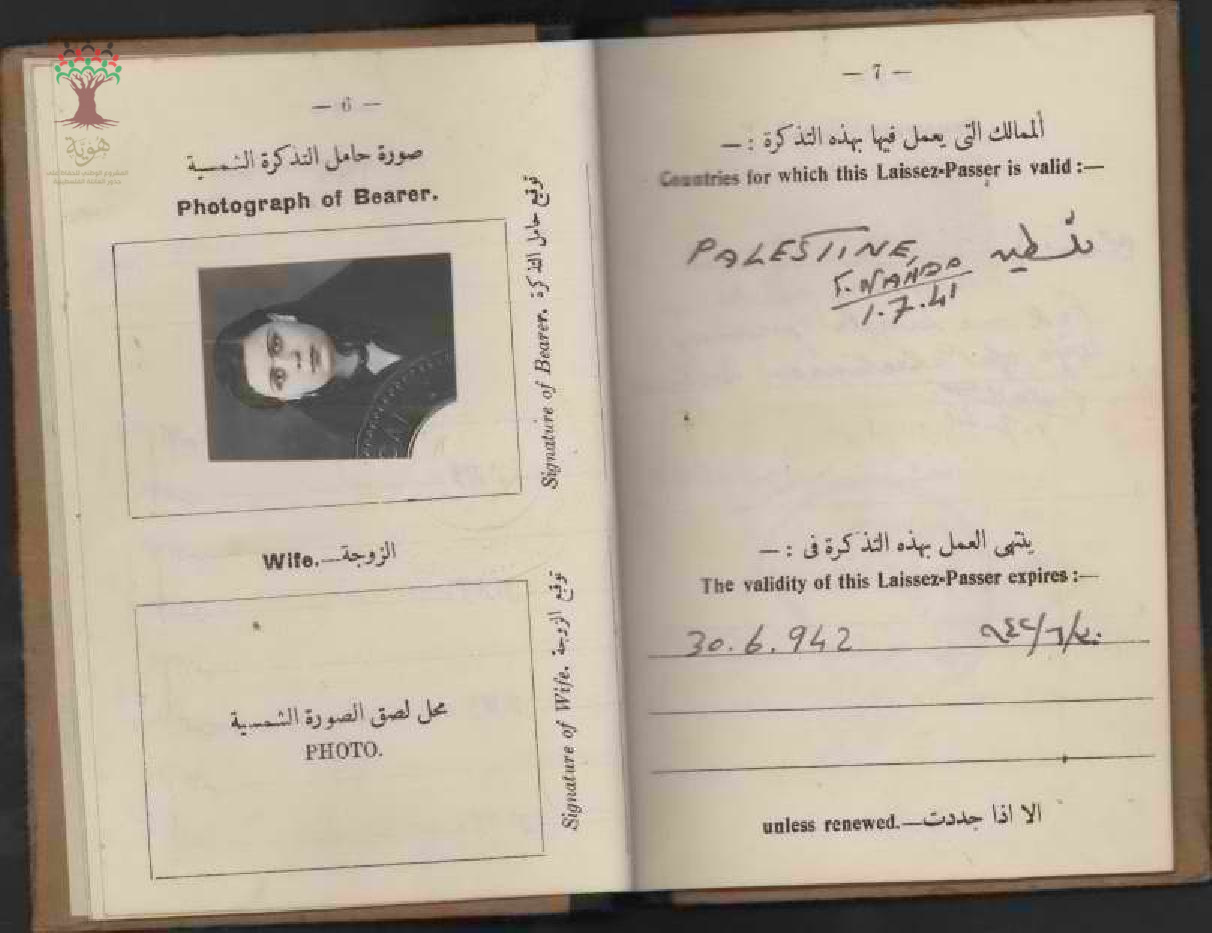 هوية
المشروع الوطني للحفاظ على
جذور العائلة الفلسطينية
— 6 —
صورة حامل التذكرة الشمسية
Photograph of Bearer.
توقيع حامل التذكرة Signature of Bearer.
الزوجة—Wife.
محل لصق الصورة الشمسية
PHOTO.
توقيع الزوجة Signature of Wife.
— 7 —
ألممالك التى يعمل فيها بهذه التذكرة : —
Countries for which this Laissez-Passer is valid :—
PALESTINE, فلسطين
1.7.41
ينتهى العمل بهذه التذكرة فى : —
The validity of this Laissez-Passer expires :—
30.6.942 ٩٤٢/٦/٣٠
unless renewed.—الا اذا جددت